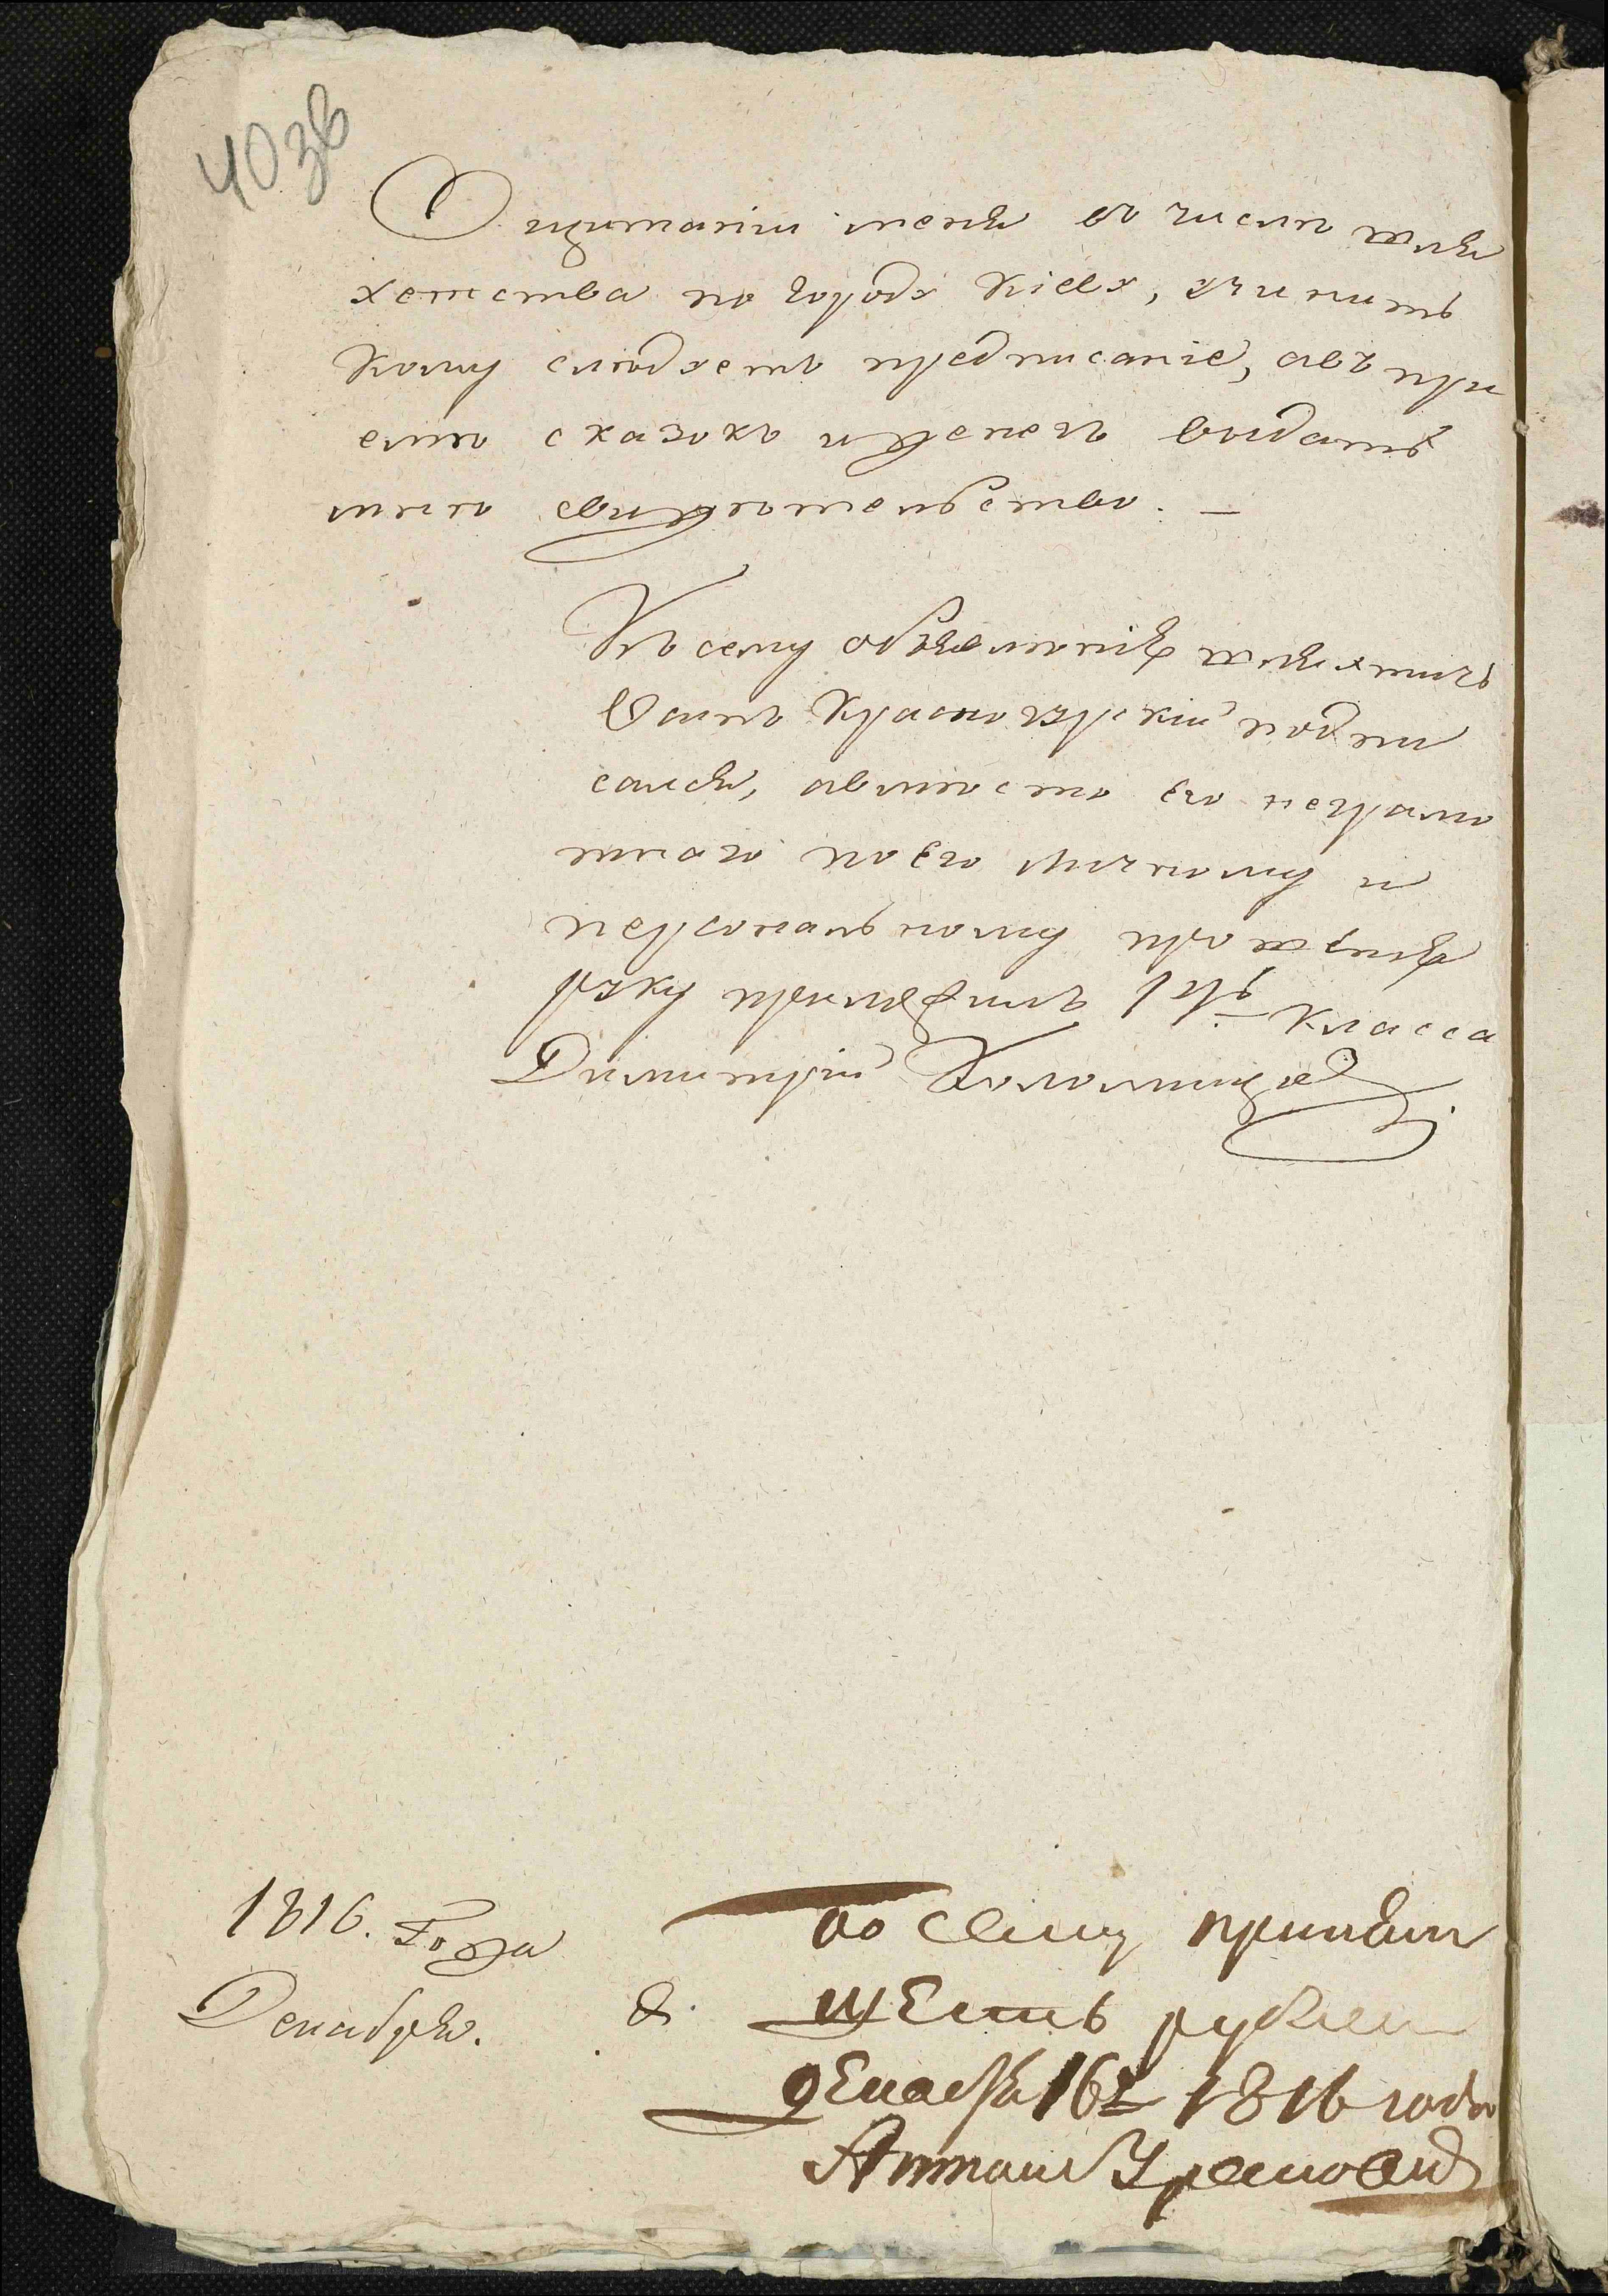 40зв
О щитаніи меня въ числе шля
хетства по городу Кіеву, учинить
кому следуетъ предписаніе, авъ при
еме сказокъ и денегъ выдать
мне свидетельство. —
Къ сему объявленію шляхтичъ
Данило Красногурскій подпи
сался, авместо его неграмо
тного по его личному и
персональному прошению
руку приложилъ 14й класса
Димитрій Коломиец
1816. Года
Декабря.
По сему принял
шесть рублей
декабря 16г 1816 года
Антон